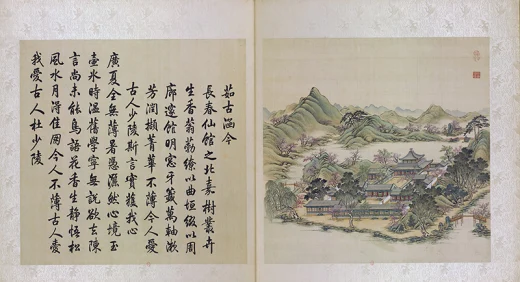 茹古涵今
長春仙館之北嘉樹叢卉
生香蓊勃繚以曲垣綴以周
廊邃館明窓牙籤萬軸漱
芳潤擷菁華不薄今人愛
古人少陵斯言實獲我心
廣夏全無薄暑憑灑然心境玉
壺冰時溫舊學寧無說欲去陳
言尚未能鳥語花香生靜悟松
風水月得佳朋今人不薄古人愛
我愛古人杜少陵